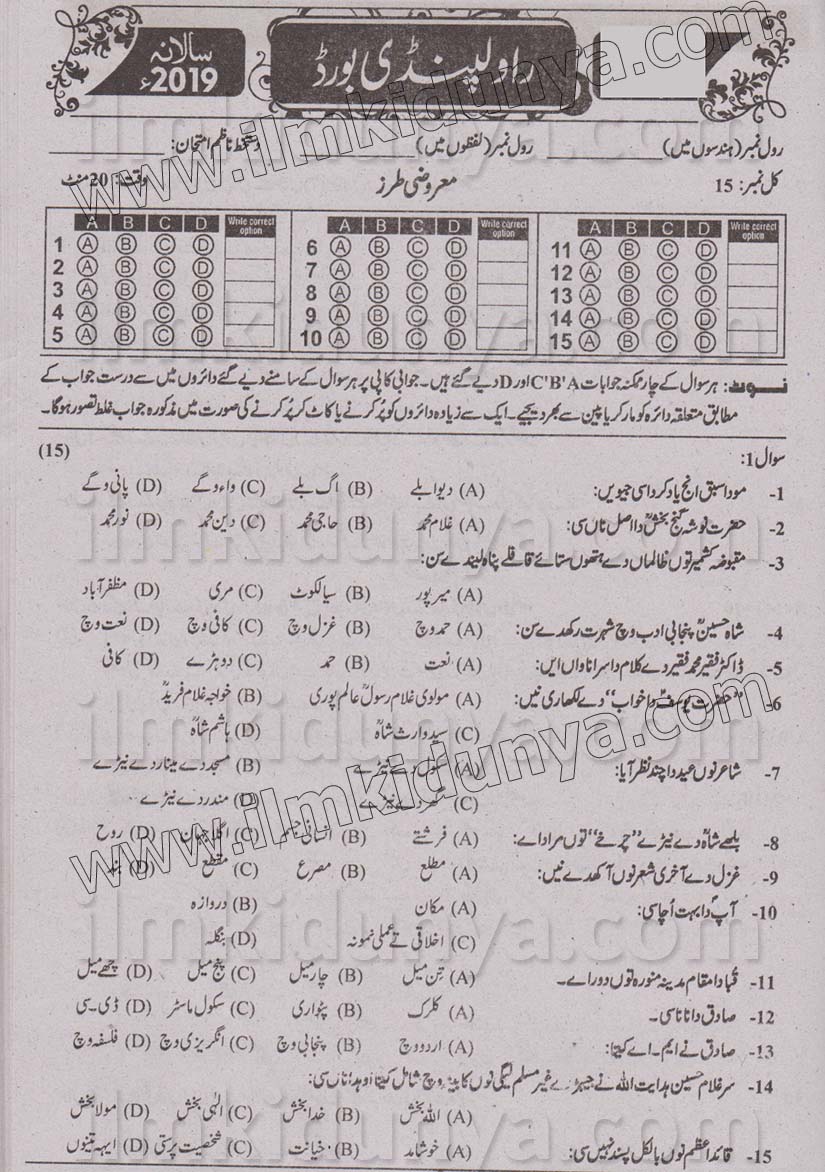 سالانہ 2019ء
راولپنڈی بورڈ
رول نمبر (ہندسوں میں) ____________ رول نمبر (لفظوں میں) ____________ دستخط ناظم امتحان: ____________
کل نمبر: 15 معروضی طرز وقت: 20 منٹ
A B C D Write correct option A B C D Write correct option A B C D Write correct option
1 A B C D 6 A B C D 11 A B C D
2 A B C D 7 A B C D 12 A B C D
3 A B C D 8 A B C D 13 A B C D
4 A B C D 9 A B C D 14 A B C D
5 A B C D 10 A B C D 15 A B C D
نوٹ: ہر سوال کے چار ممکنہ جوابات C'B'A اور D دیے گئے ہیں۔ جوابی کاپی پر ہر سوال کے سامنے دیے گئے دائروں میں سے درست جواب کے
مطابق متعلقہ دائرہ کو مارکر یا پین سے بھر دیجیے۔ ایک سے زیادہ دائروں کو پُر کرنے یا کاٹ کر پُر کرنے کی صورت میں مذکورہ جواب غلط تصور ہوگا۔
سوال 1: (15)
1- مودا سبق انج یاد کردا سی جیویں: (A) دیوا بلے (B) اگ بلے (C) واء وگے (D) پانی وگے
2- حضرت نوشہ گنج بخشؒ دا اصل ناں سی: (A) غلام محمد (B) حاجی محمد (C) دین محمد (D) نور محمد
3- مقبوضہ کشمیر توں ظالماں دے ہتھوں ستائے قافلے پناہ لیندے سن:
(A) میر پور (B) سیالکوٹ (C) مری (D) مظفر آباد
4- شاہ حسینؒ پنجابی ادب وچ شہرت رکھدے سن: (A) حمد وچ (B) غزل وچ (C) کافی وچ (D) نعت وچ
5- ڈاکٹر فقیر محمد فقیر دے کلام دا سرناواں ایں: (A) نعت (B) حمد (C) دوہڑے (D) کافی
6- ”حضرت یوسفؑ دا خواب“ دے لکھاری نیں: (A) مولوی غلام رسولؒ عالم پوری (B) خواجہ غلام فریدؒ
(C) سید وارث شاہؒ (D) ہاشم شاہؒ
7- شاعر نوں عید دا چند نظر آیا: (A) سکول دے نیڑے (B) مسجد دے مینار دے نیڑے
(C) گھر دے نیڑے (D) مندر دے نیڑے
8- بلھے شاہؒ دے نیڑے ”چرخے“ توں مراد اے: (A) فرشتے (B) انسانی جسم (C) اگلا جہان (D) روح
9- غزل دے آخری شعر نوں آکھدے نیں: (A) مطلع (B) مصرع (C) مقطع (D) بند
10- آپؐ دا بہت اُچا سی: (A) مکان (B) دروازہ
(C) اخلاقی تے عملی نمونہ (D) بنگلہ
11- قُبا دا مقام مدینہ منورہ توں دور اے۔ (A) تِن میل (B) چار میل (C) پنج میل (D) چھے میل
12- صادق دا نانا سی۔ (A) کلرک (B) پٹواری (C) سکول ماسٹر (D) ڈی۔سی
13- صادق نے ایم۔اے کیتا: (A) اردو وچ (B) پنجابی وچ (C) انگریزی وچ (D) فلسفہ وچ
14- سر غلام حسین ہدایت اللہ نے جیہڑے غیر مسلم لیگی نوں کابینہ وچ شامل کیتا اوہدا ناں سی:
(A) اللہ بخش (B) خدا بخش (C) الٰہی بخش (D) مولا بخش
15- قائد اعظم نوں بالکل پسند نہیں سی: (A) خوشامد (B) خیانت (C) شخصیت پرستی (D) ایہہ تِنوں
www.ilmkidunya.com
www.ilmkidunya.com
ilmkidunya.com
ilmkidunya.com
ilmkidunya.com
ilmkidunya.com
ilmkidunya.com